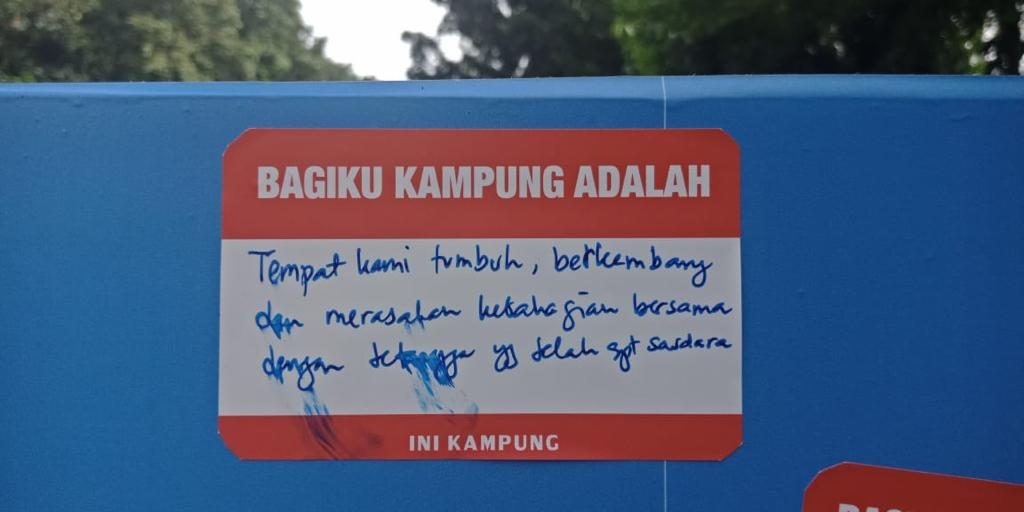 BAGIKU KAMPUNG ADALAH
Tempat kami tumbuh, berkembang
dan merasakan kebahagian bersama
dengan tetangga yg telah spt saudara
INI KAMPUNG